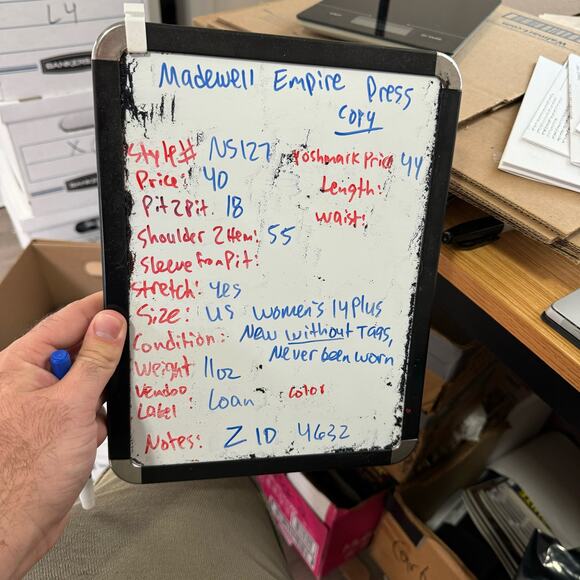 Madewell Empire Dress
Copy
Style# NS127 Poshmark Price 44
Price: 40 Length:
Pit2Pit. 18 Waist:
Shoulder 2 Hem: 55
Sleeve From Pit:
Stretch: yes
Size: US Women's 14 Plus
Condition: New without Tags,
Never been worn
Weight 11oz
Vendoo Color
Label: Loan
Notes: Z ID 4632
L4
BANKERS
X